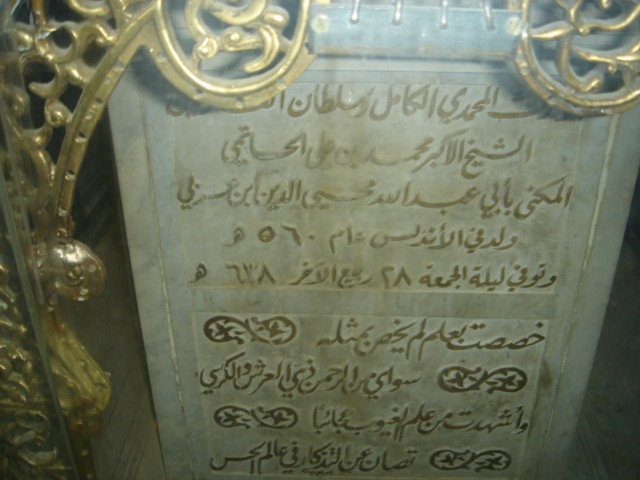 المحمدي الكامل وسلطان
الشيخ الاكبر محمد بن علي الحاتمي
المكنى بأبي عبد الله محيي الدين ابن عربي
ولد في الأندلس عام ٥٦٠ هـ
وتوفي ليلة الجمعة ٢٨ ربيع الآخر ٦٣٨ هـ
خصصت بعلم لم يخص بمثله
سواي من الرحمن ذي العرش والكرسي
وأشهدت من علم الغيوب عجائبا
تصان عن التذكار في عالم الحس